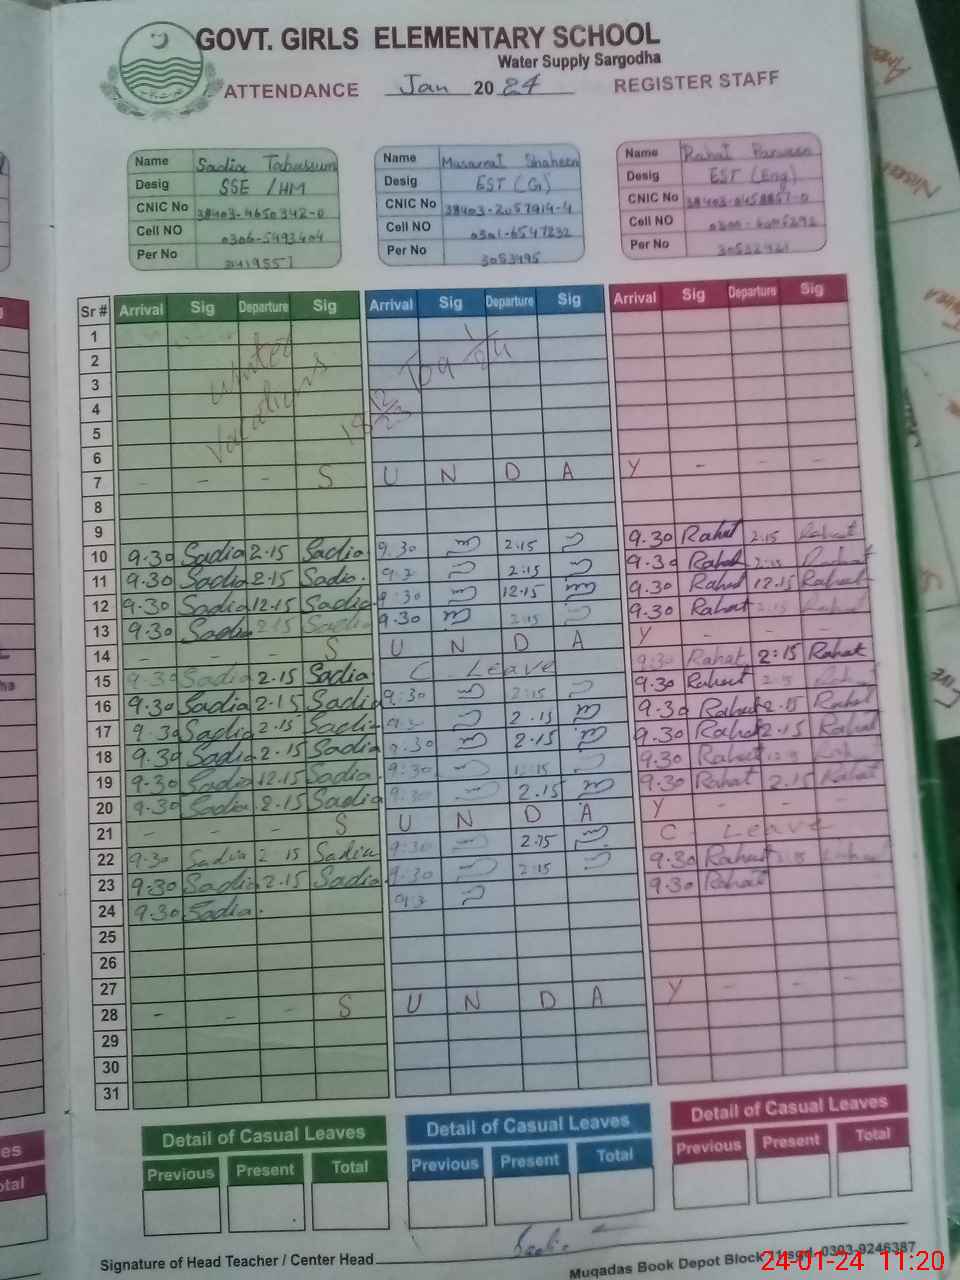 GOVT. GIRLS ELEMENTARY SCHOOL
Water Supply Sargodha
ATTENDANCE Jan 20 24 REGISTER STAFF
Name Sadia Tabassum Name Musarrat Shaheen Name Rahat Parveen
Desig SSE /HM Desig EST (G) Desig EST (Eng)
CNIC No 38403-4650342-0 CNIC No 38403-2057914-4 CNIC No
Cell NO 0306-5493404 Cell NO 0301-6547232 Cell NO
Per No Per No 3053495 Per No
Sr # Arrival Sig Departure Sig Arrival Sig Departure Sig Arrival Sig Departure Sig
1
2 Winter
3 Vacations
4
5
6
7 - - - S U N D A Y - - -
8
9
10 9.30 Sadia 2.15 Sadia 9.30 2.15 9.30 Rahat 2.15 Rahat
11 9.30 Sadia 2.15 Sadia 9.3 2.15 9.30 Rahat 2.15 Rahat
12 9.30 Sadia 12.15 Sadia 9.30 12.15 9.30 Rahat 12.15 Rahat
13 9.30 Sadia 2.15 Sadia 9.30 2.15 9.30 Rahat 2.15 Rahat
14 - - - S U N D A Y - - -
15 9.30 Sadia 2.15 Sadia C. Leave 9:30 Rahat 2:15 Rahat
16 9.30 Sadia 2.15 Sadia 9:30 2:15 9.30 Rahat 2.15 Rahat
17 9.30 Sadia 2.15 Sadia 9.3 2.15 9.30 Rahat 2.15 Rahat
18 9.30 Sadia 2.15 Sadia 9.30 2.15 9.30 Rahat 2.15 Rahat
19 9.30 Sadia 12.15 Sadia 9:30 12.15 9.30 Rahat Rahat
20 9.30 Sadia 2.15 Sadia 9:30 2.15 9.30 Rahat 2.15 Rahat
21 - - - S U N D A Y - - -
22 9.30 Sadia 2.15 Sadia 9:30 2.15 C Leave
23 9.30 Sadia 2.15 Sadia 9:30 2:15 9.30 Rahat
24 9.30 Sadia 9.3 9.30 Rahat
25
26
27
28 - - - S U N D A Y - - -
29
30
31
Detail of Casual Leaves Detail of Casual Leaves Detail of Casual Leaves
Previous Present Total Previous Present Total Previous Present Total
Signature of Head Teacher / Center Head
Muqadas Book Depot Block 0303-9246387
24-01-24 11:20